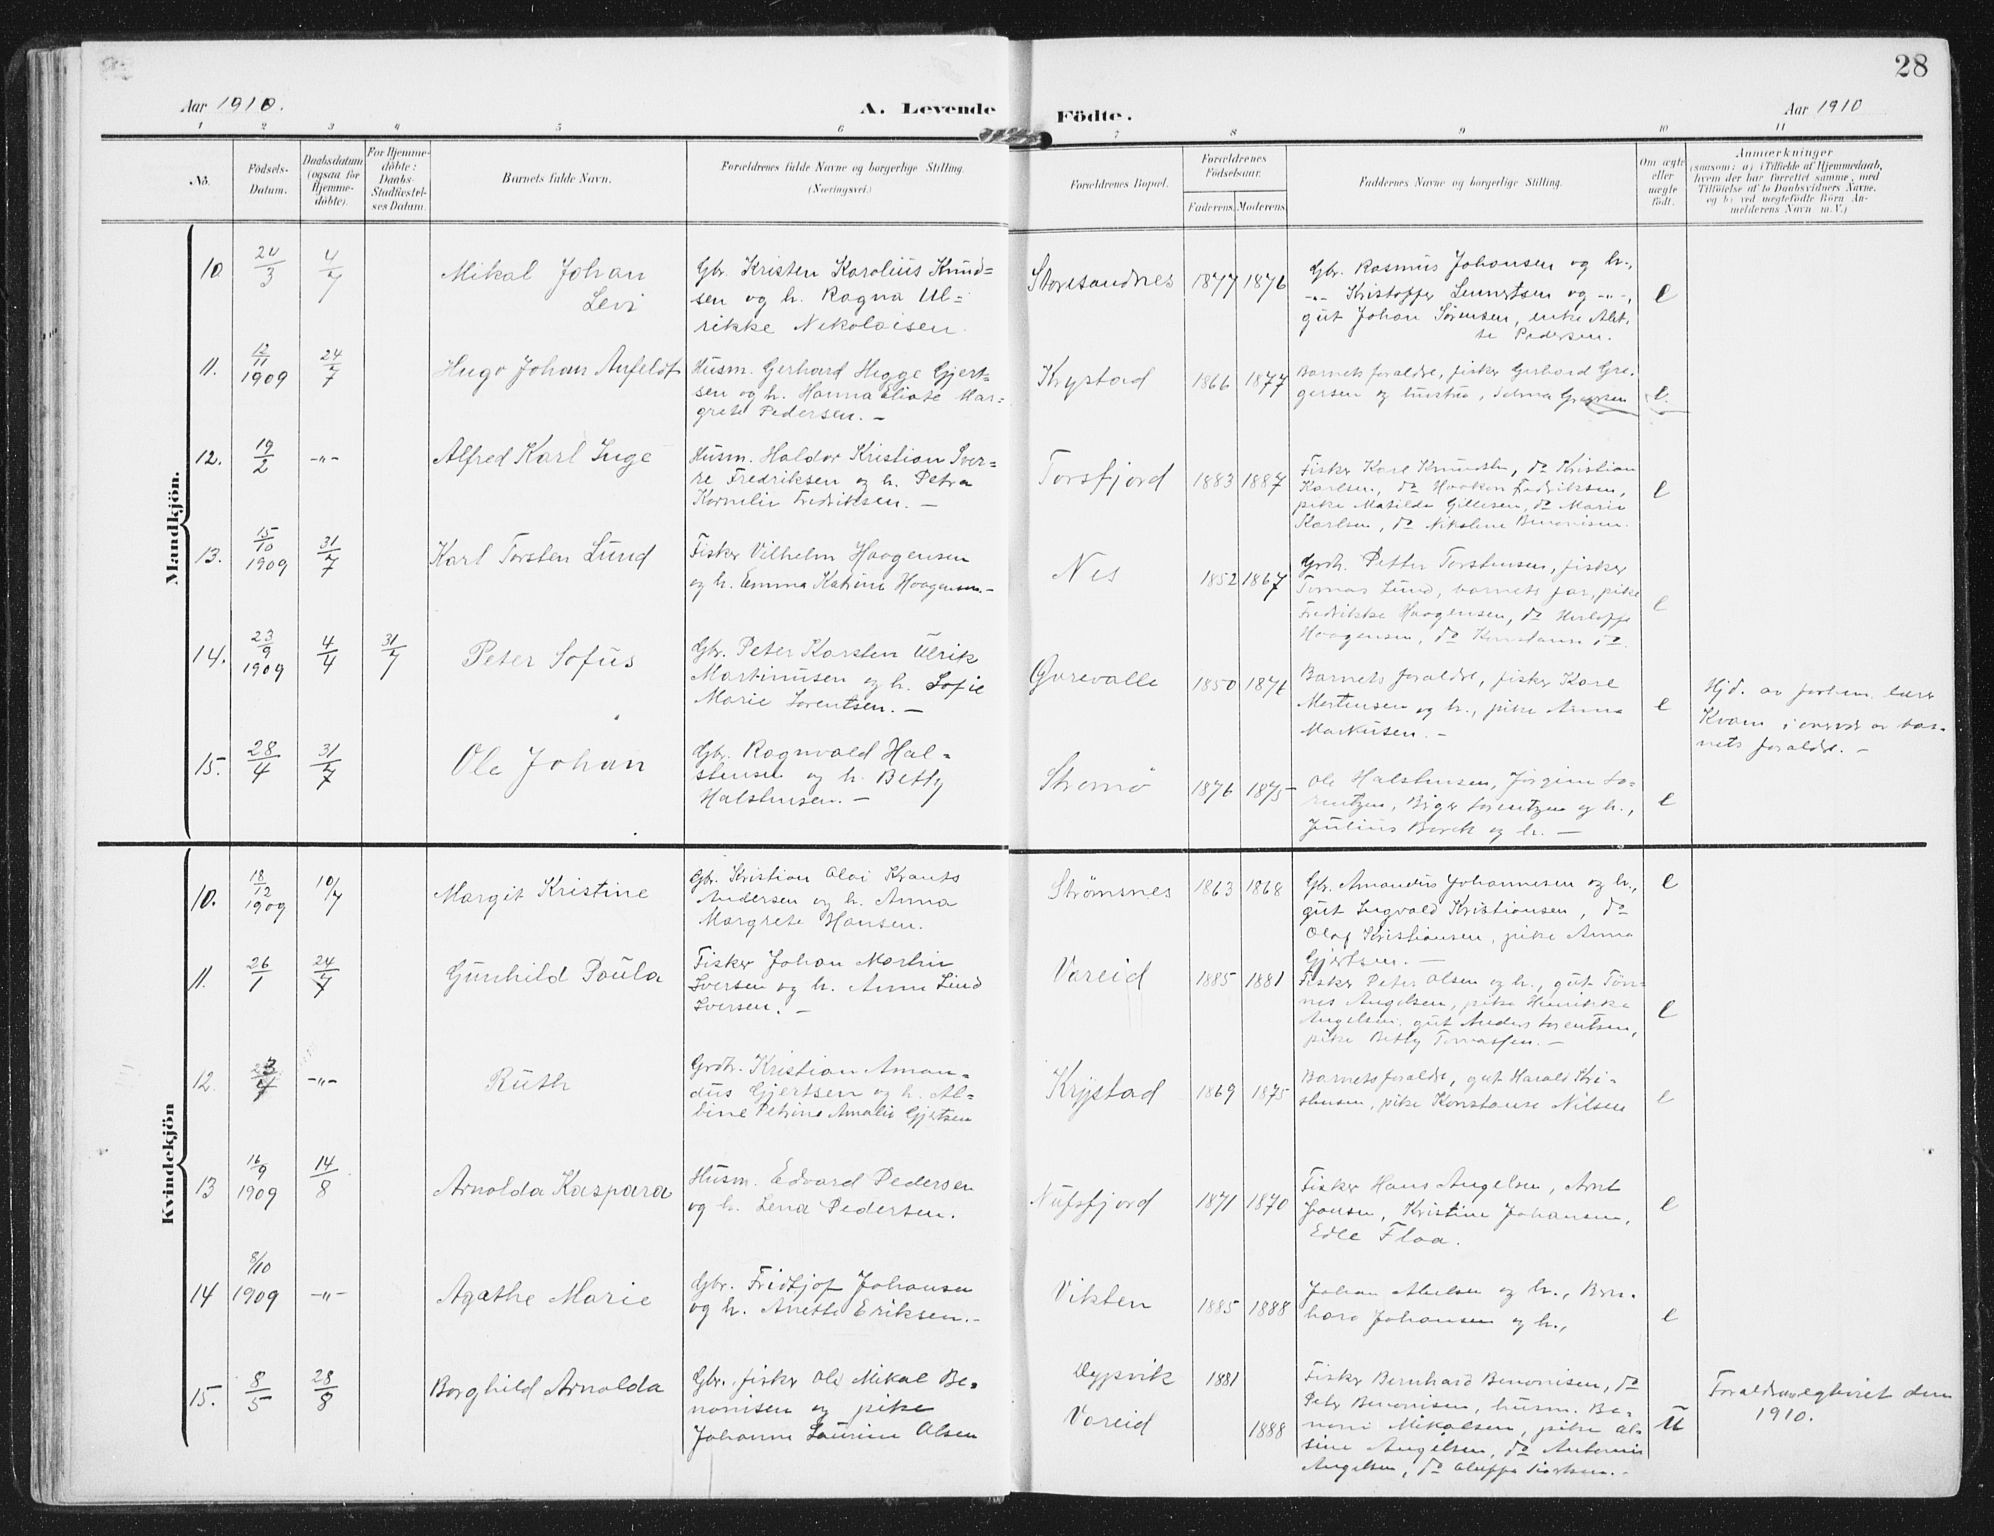 28
Aar 1910.
A. Levende
Födte.
Aar 1910
1 2 3 4 5 6 7 8 9 10 11
No.
Födsels-
Datum.
Daabsdatum
(ogsaa for
Hjemme-
döbte).
For Hjemme-
döbte:
Daabs-
Stadfæstel-
ses Datum.
Barnets fulde Navn.
Forældrenes fulde Navne og borgerlige Stilling.
(Næringsvei.)
Forældrenes Bopæl.
Forældrenes
Födselsaar.
Faderens. Moderens.
Faddernes Navne og borgerlige Stilling.
Om ægte
eller
uægte
födt.
Anmærkninger
(saasom: a) i Tilfælde af Hjemmedaab,
hvem der har forrettet samme, med
Tilföielse af to Daabsvidners Navne,
og b) ved uægtefödte Börn An-
melderens Navn m. V.)
Mandkjön.
10. 24/3 4/7
Mikal Johan
Levi
Gbr. Kristen Karolius Knud-
sen og h. Ragna Ul-
rikke Nikolaisen.
Storesandnes 1877 1876
Gbr. Rasmus Johansen og h.,
-"- Kristoffer Lennertsen og -"-,
gut Johan Sørensen, enke
Pedersen.
e
11. 12/11 1909 24/7
Hugo Johan Anfeldt
Husm. Gerhard Hegge Gjert-
sen og h. Hanna Mar-
grete Pedersen. -
Krystad 1866 1877
Barnets foraldre, fisker Gerhard Gre-
gersen og hustru, Selma
e
12. 19/2 -"-
Alfred Karl Inge
Husm. Haldor Kristian Sver-
re Fredriksen og h. Petra
Kornelie Fredriksen. -
Torsfjord 1883 1887
Fisker Karl Knudsen, do Kristian
Karlsen, do Haakon Fredriksen,
pike Matilde Gillesen, do Marie
Karlsen, do Nikoline Benonisen.
e
13. 15/10 1909 31/7
Karl Torsten Lund
Fisker Vilhelm Haagensen
og h. Emma Katrine Haagensen. -
Nes 1852 1867
Grdb. Petter Torstensen, fisker
Tomas Lund, barnets far, pike
Fredrikke Haagensen, do
Haagensen, do Konstanse do.
e
14. 23/9 1909 4/4 31/7
Peter Sofus
Gbr. Peter Karsten Ulrik
Martinusen og h. Sofie
Marie Lorentsen. -
1850 1876
Barnets foraldre, fisker Karl
Mortensen og h., pike Anna
Markusen. -
e
Hjd. av lærer
Kvam i overvær av bar-
nets foraldre. -
15. 28/4 31/7
Ole Johan
Gbr. Ragnvald Hal-
stensen og h. Betty
Halstensen. -
Strømø 1876 1875
Ole Halstensen, Jørgine Lo-
rentzen, Biger Lorentzen og h.,
Julius Borch og h. -
e
Kvindekjön
10. 18/12 1909 10/7
Margit Kristine
Gbr. Kristian Olai Krants
Andersen og h. Anna
Margrete Hansen.
Strømsnes 1863 1868
Gbr. Amandus Johannesen og h.,
gut Ingvald Kristiansen, do
Olaf Kristiansen, pike Anna
Gjertsen. -
e
11. 26/1 24/7
Gunhild Paula
Fisker Johan Martin
Iversen og h. Anna Lind
Iversen. -
Vareid 1885 1881
Fisker Peter Olsen og h., gut Tøn-
nes Angelsen, pike Henrikke
Angelsen, gut Anders Lorentsen,
pike Betty Tomassen. -
e
12. -"-
Ruth
Grdb. Kristian Aman-
dus Gjertsen og h. Al-
bine Petrine Amalie Gjertsen
Krystad 1869 1875
Barnets foraldre, gut Harald Kri-
stensen, pike Konstanse Nilsen
e
13 16/9 1909 14/8
Arnolda Kaspara
Husm. Edvard Pedersen
og h. Lena Pedersen.
Nufsfjord 1871 1870
Fisker Hans Angelsen, Arnt
Jensen, Kristine Johansen,
Edle Flaa.
e
14 8/10 1909 -"-
Agathe Marie
Gbr. Fridtjof Johansen
og h. Anette Eriksen. -
Vikten 1885 1888
Johan Abelsen og h., Bern-
hard Johansen og h.,
e
15. 8/5 28/8
Borghild Arnolda
Gbr. fisker Ole Mikal Be-
nonisen og pike
Johanne Laurine Olsen
Dypvik 1881
Vareid 1888
Fisker Bernhard Benonisen, do
Peter Benonisen, husm. Be-
noni Mikalsen, pike Al-
sine Angelsen, do
Angelsen, do
u
1910.